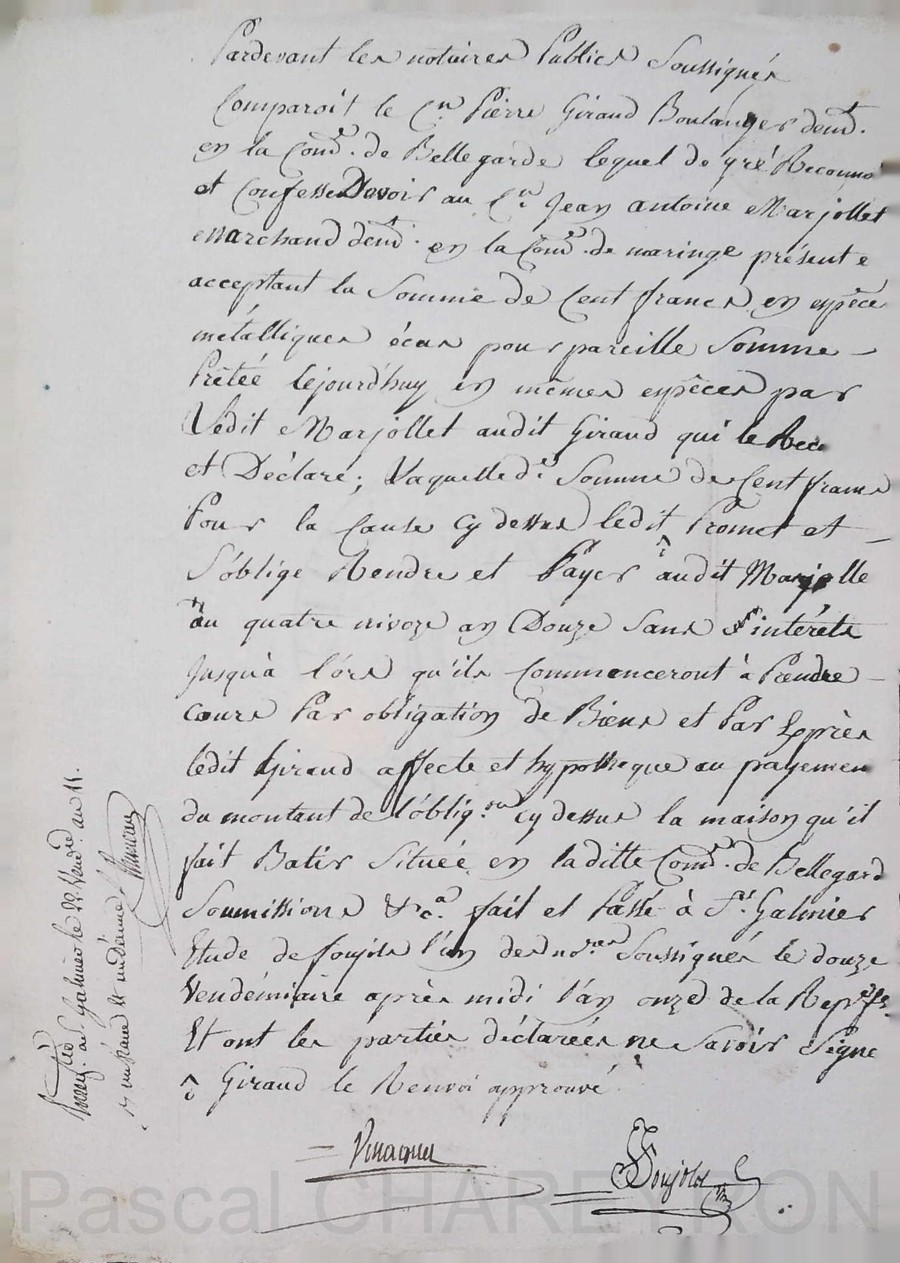 Pardevant les notaires Publics Soussignés
Comparoit le Cn. Pierre Giraud Boulanger demt.
en la Come. de Bellegarde lequel de gré Reconno
et Confesse Devoir au Cn. Jean antoine Marjollet
Marchand demt. en la Come. de maringe présent e
acceptant la Somme de Cent francs en espèce
métalliques écus pour pareille Somme
Prêtée lejourd'huy en mêmes espèces par
Ledit Marjollet audit Giraud qui le Reco
et Déclaré; Laquelle de. Somme de Cent francs
Pour la Cause cy dessus ledit Promet et
S'oblige Rendre et Payer audit Marjolle
au quatre nivoze an Douze Sans intérêts
Jusqu'à l'ors qu'ils Commenceront à Prendre
Cours Par obligation de Biens et Par Exprès
ledit Giraud affecte et hypothèque au payemen
du montant de l'oblig.on cy dessus la maison qu'il
fait Batir Située en laditte Come. de Bellegard
Soumissions &ca. fait et Passé à St. Galmier
Etude de foujols l'un des nores Soussignés le douze
Vendémiaire après midi l'an onze de la Rep. fse.
Et ont les parties déclarées ne Savoir Signe
Giraud le Renvoi approuvé
Foujols
à St. galmier le 22 Vendre an 11.
Pascal CHAREYRON